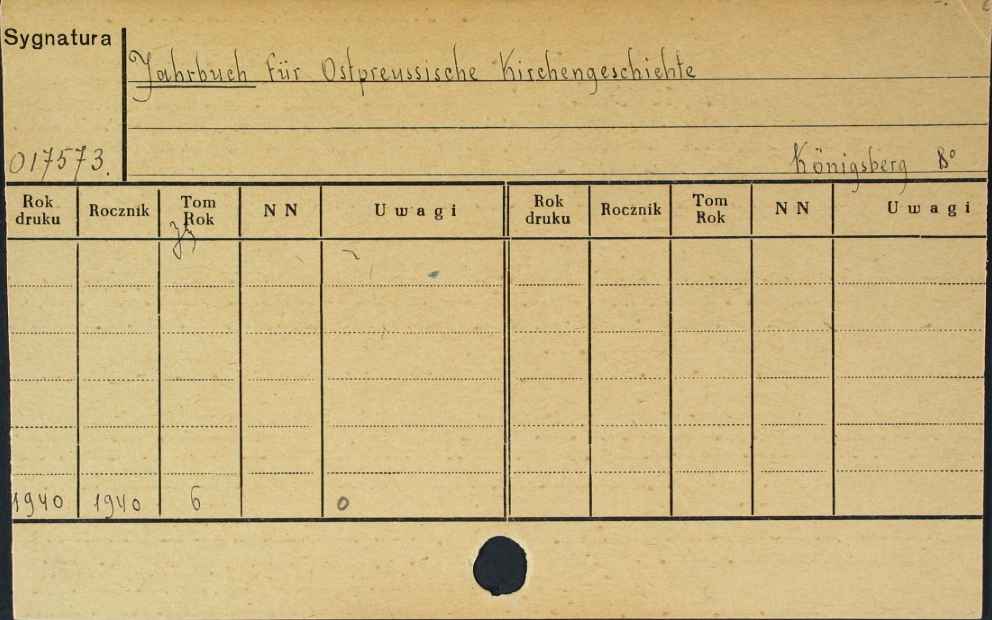 Sygnatura
Jahrbuch für Ostpreussische Kirchengeschichte
017573.
Königsberg 8°
Rok druku Rocznik Tom Rok N N Uwagi Rok druku Rocznik Tom Rok N N Uwagi
1940 1940 6 0